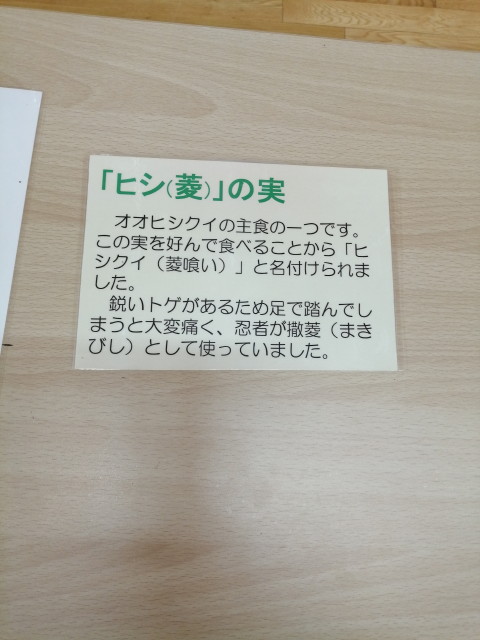 「ヒシ(菱)」の実
オオヒシクイの主食の一つです。
この実を好んで食べることから「ヒ
シクイ（菱喰い）」と名付けられま
した。
鋭いトゲがあるため足で踏んでし
まうと大変痛く、忍者が撒菱（まき
びし）として使っていました。